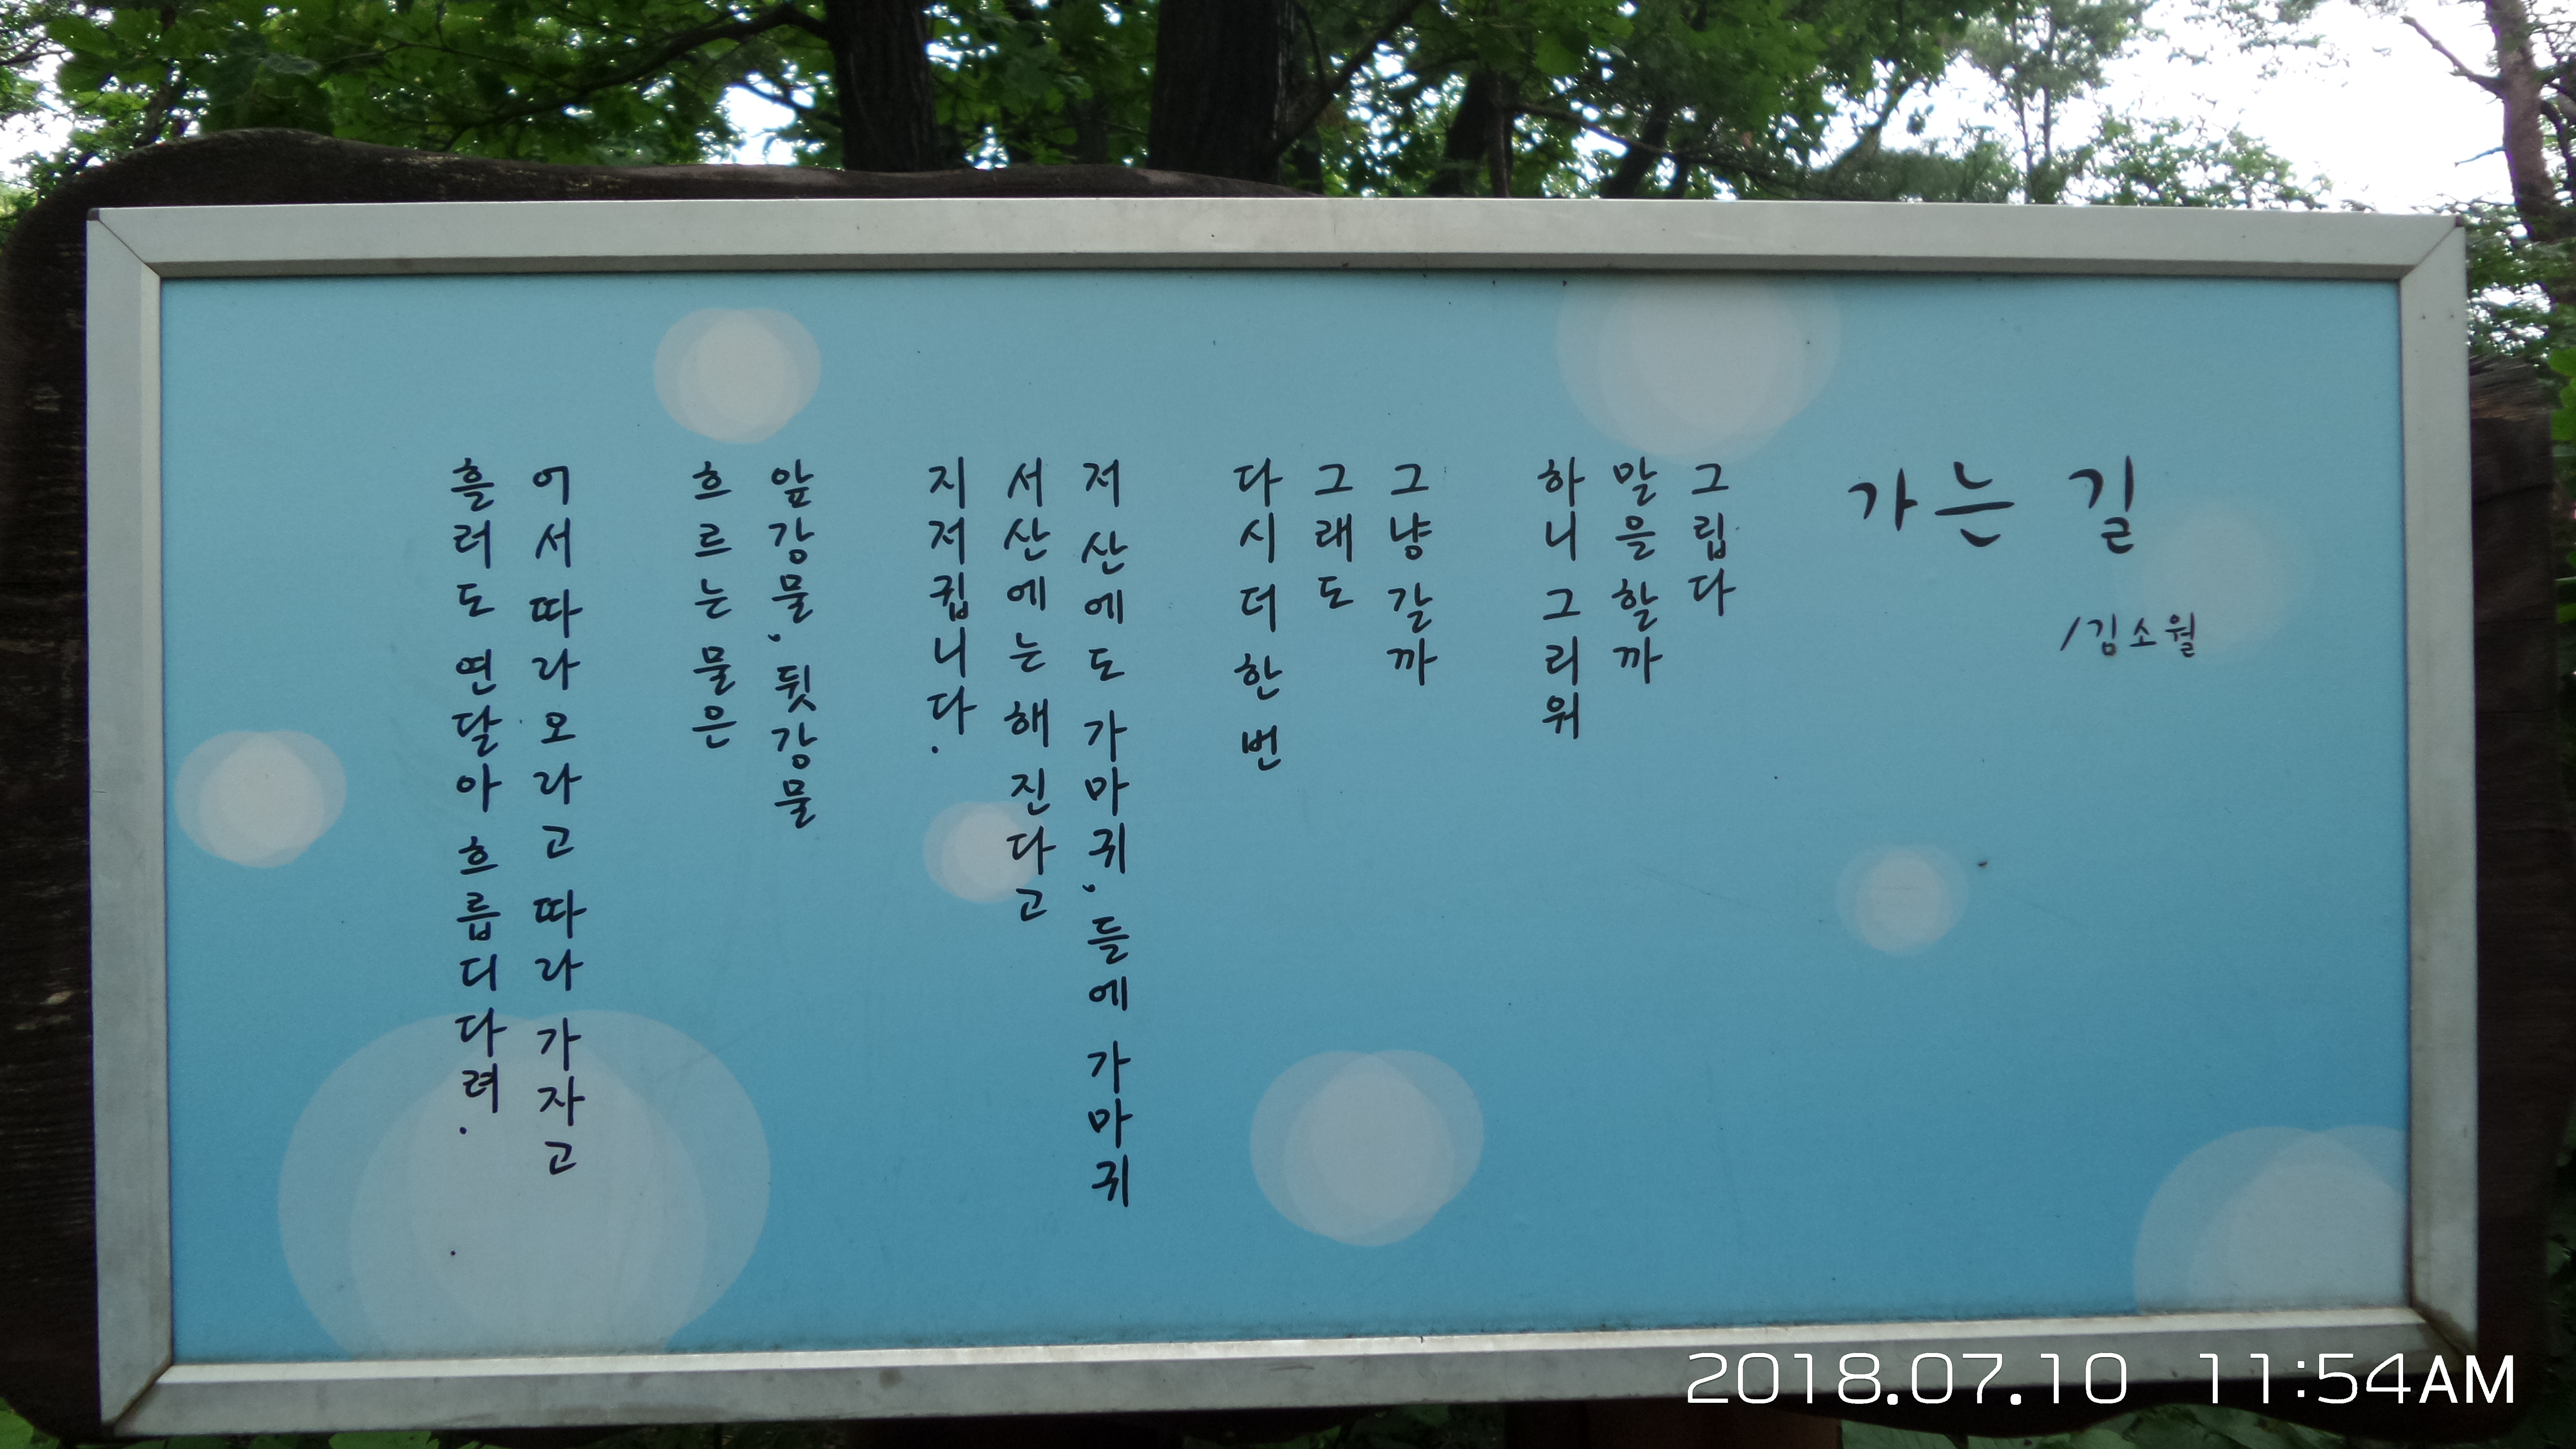 가는 길
/김소월
그립다
말을 할까
하니 그리워
그냥 갈까
그래도
다시 더 한 번
저 산에도 가마귀, 들에 가마귀
서산에는 해 진다고
지저귑니다.
앞 강물, 뒷 강물
흐르는 물은
어서 따라오라고 따라 가자고
흘러도 연달아 흐릅디다려.
2018.07.10 11:54AM